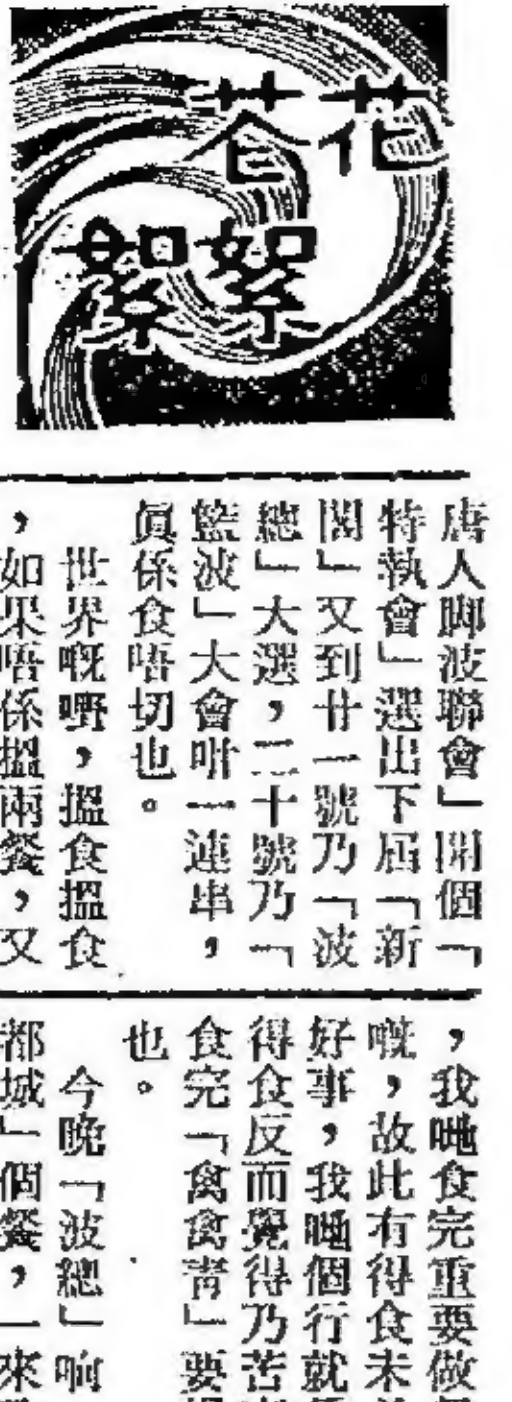 花絮
荅絮
唐人脚波聯會」開個「
特執會」選出下屆「新
閣」又到廿一號乃「波
總」大選，二十號乃「
籃波」大會咁一連串，
眞係食唔切也。
世界嘅嘢，搵食搵食
，如果唔係搵兩餐，又
，我哋食完重要做
嘅，故此有得食未
好事，我哋個行就
得食反而覺得乃苦
食完「禽禽青」要
也。
今晚「波總」响
都城」個餐，一來